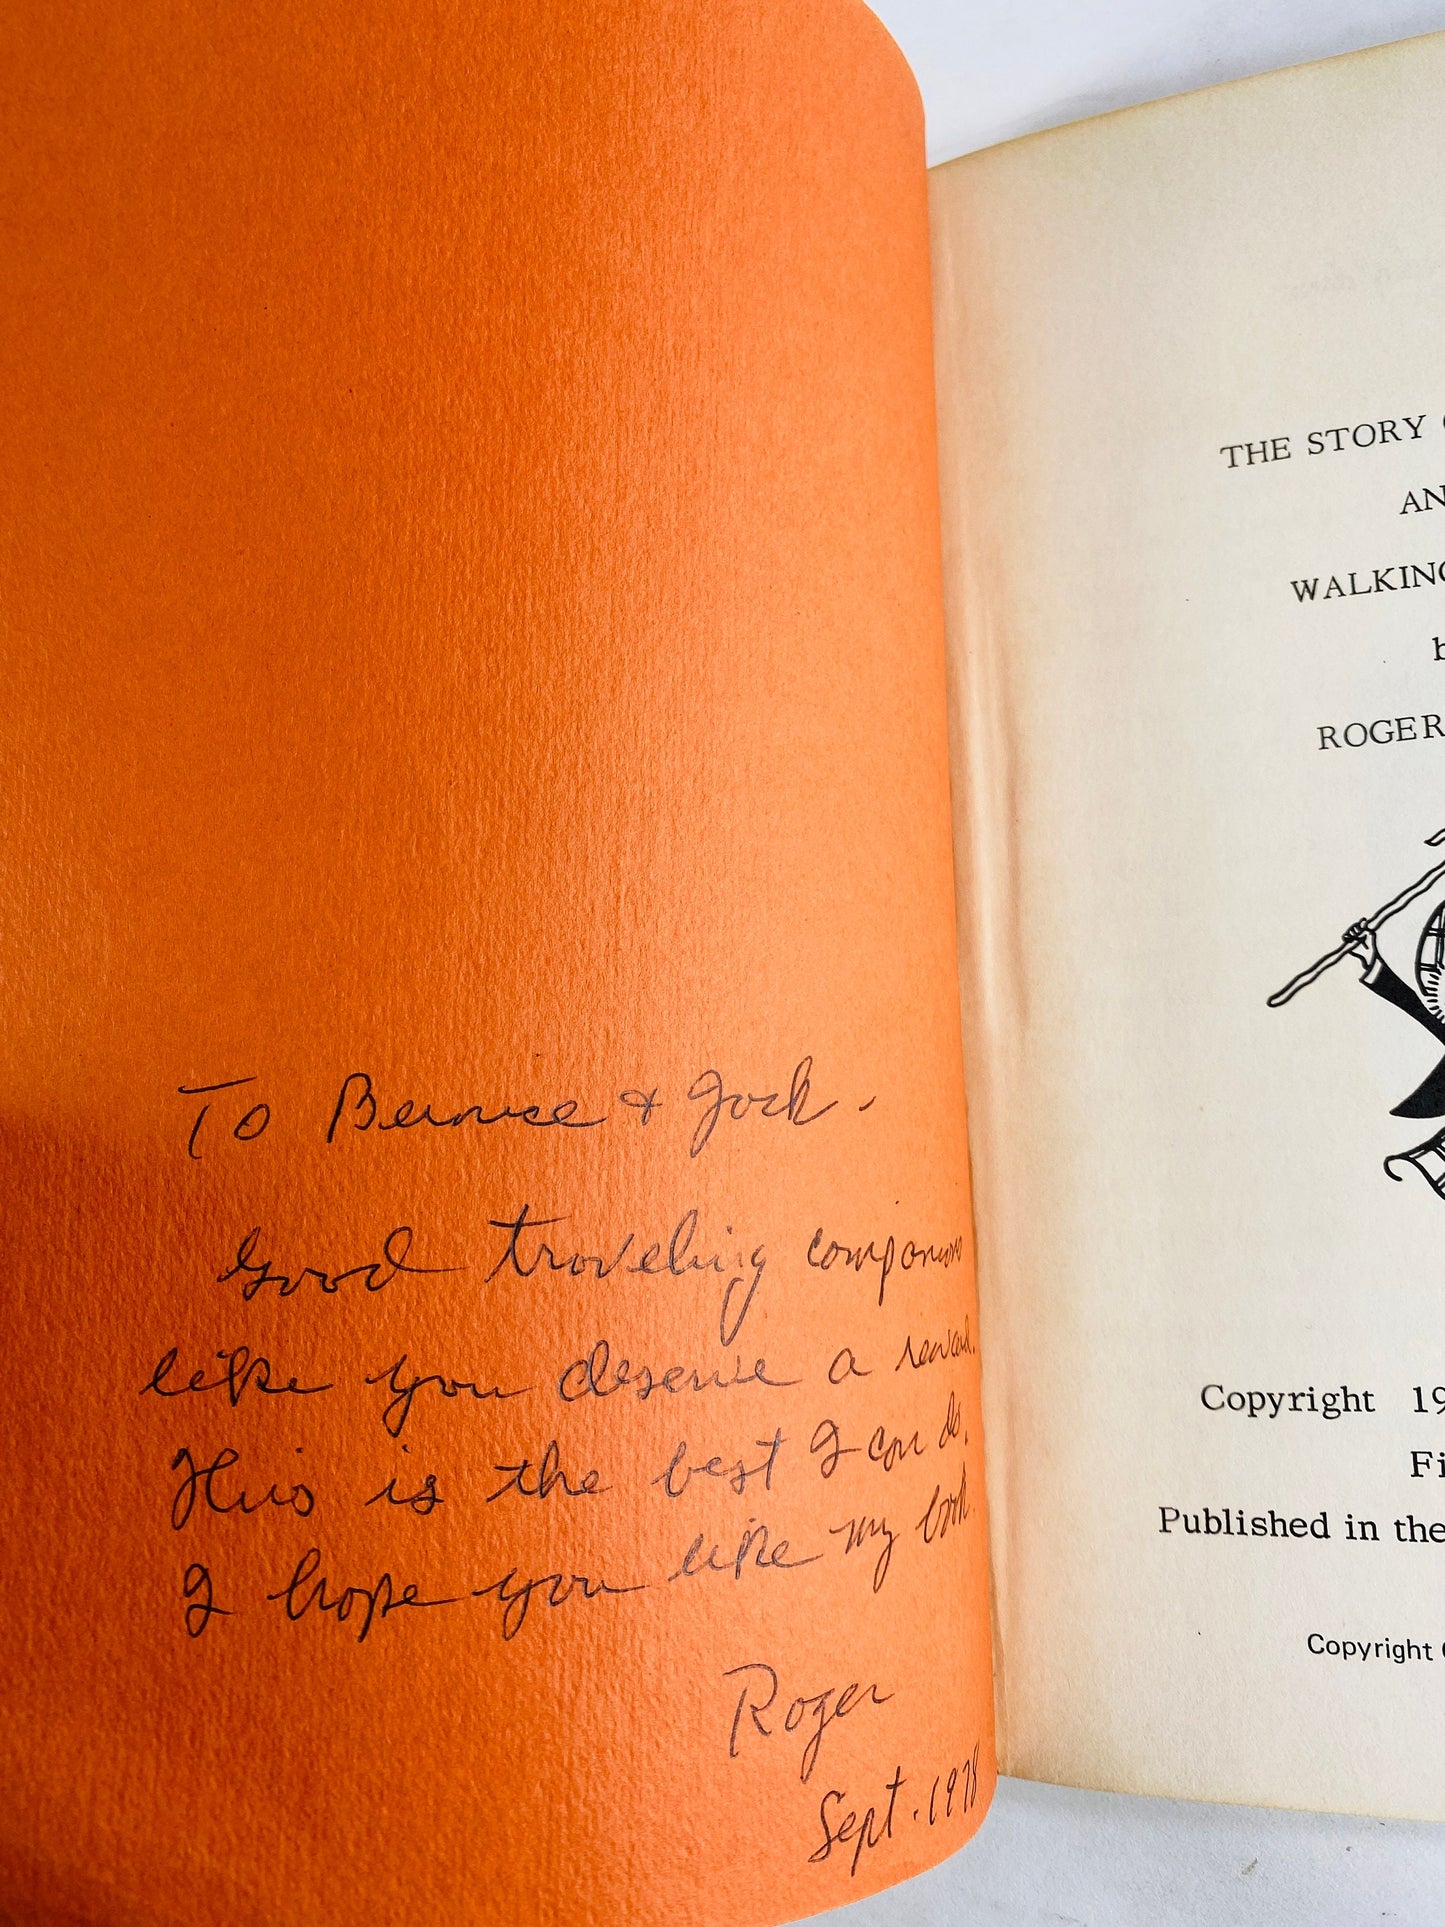 To Bernice & Jock.
Good traveling companions
like you deserve a reward.
This is the best I can do.
I hope you like my book.
Roger
Sept. 1978
THE STORY
AN
WALKING
b
ROGER
Copyright 19
Fi
Published in the
Copyright